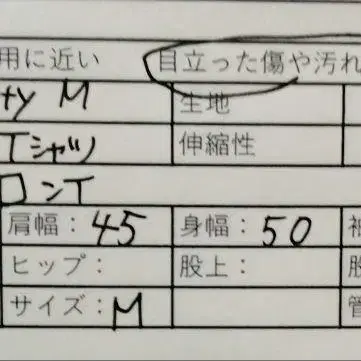 用に近い 目立った傷や汚れ
ty M 生地
Tシャツ 伸縮性
ロンT
肩幅：45 身幅：50 袖
ヒップ： 股上： 股
サイズ：M